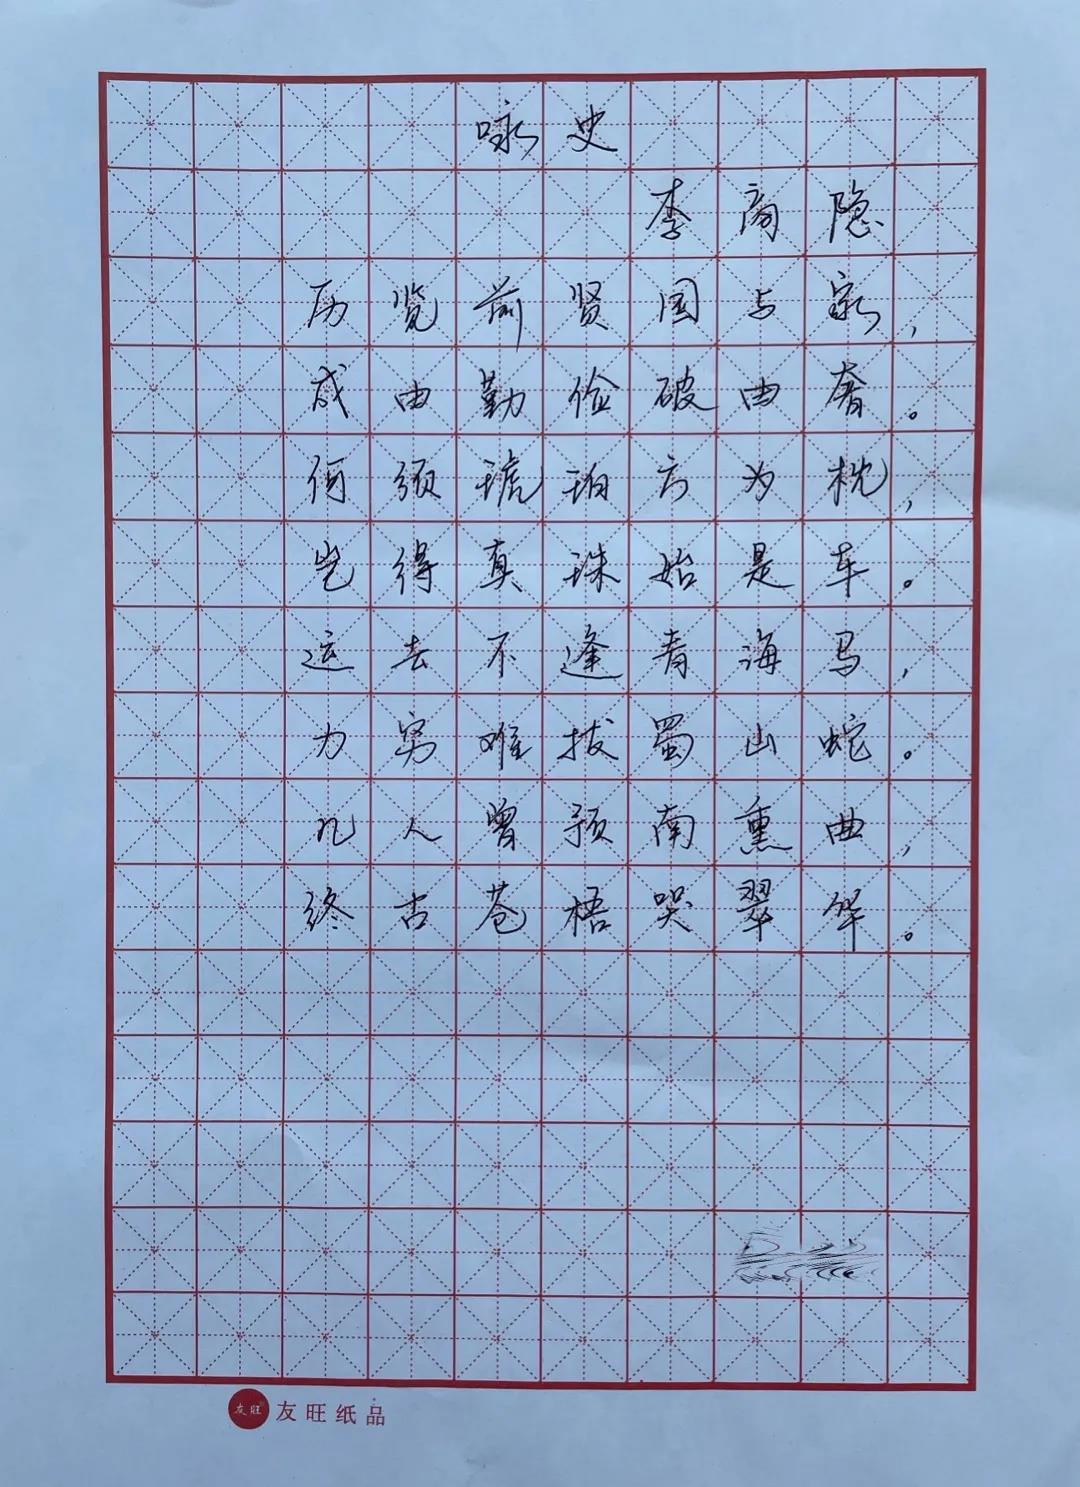 咏史
李商隐
历览前贤国与家，
成由勤俭破由奢。
何须琥珀方为枕，
岂得真珠始是车。
运去不逢青海马，
力穷难拔蜀山蛇。
几人曾预南熏曲，
终古苍梧哭翠华。
友旺
友旺纸品